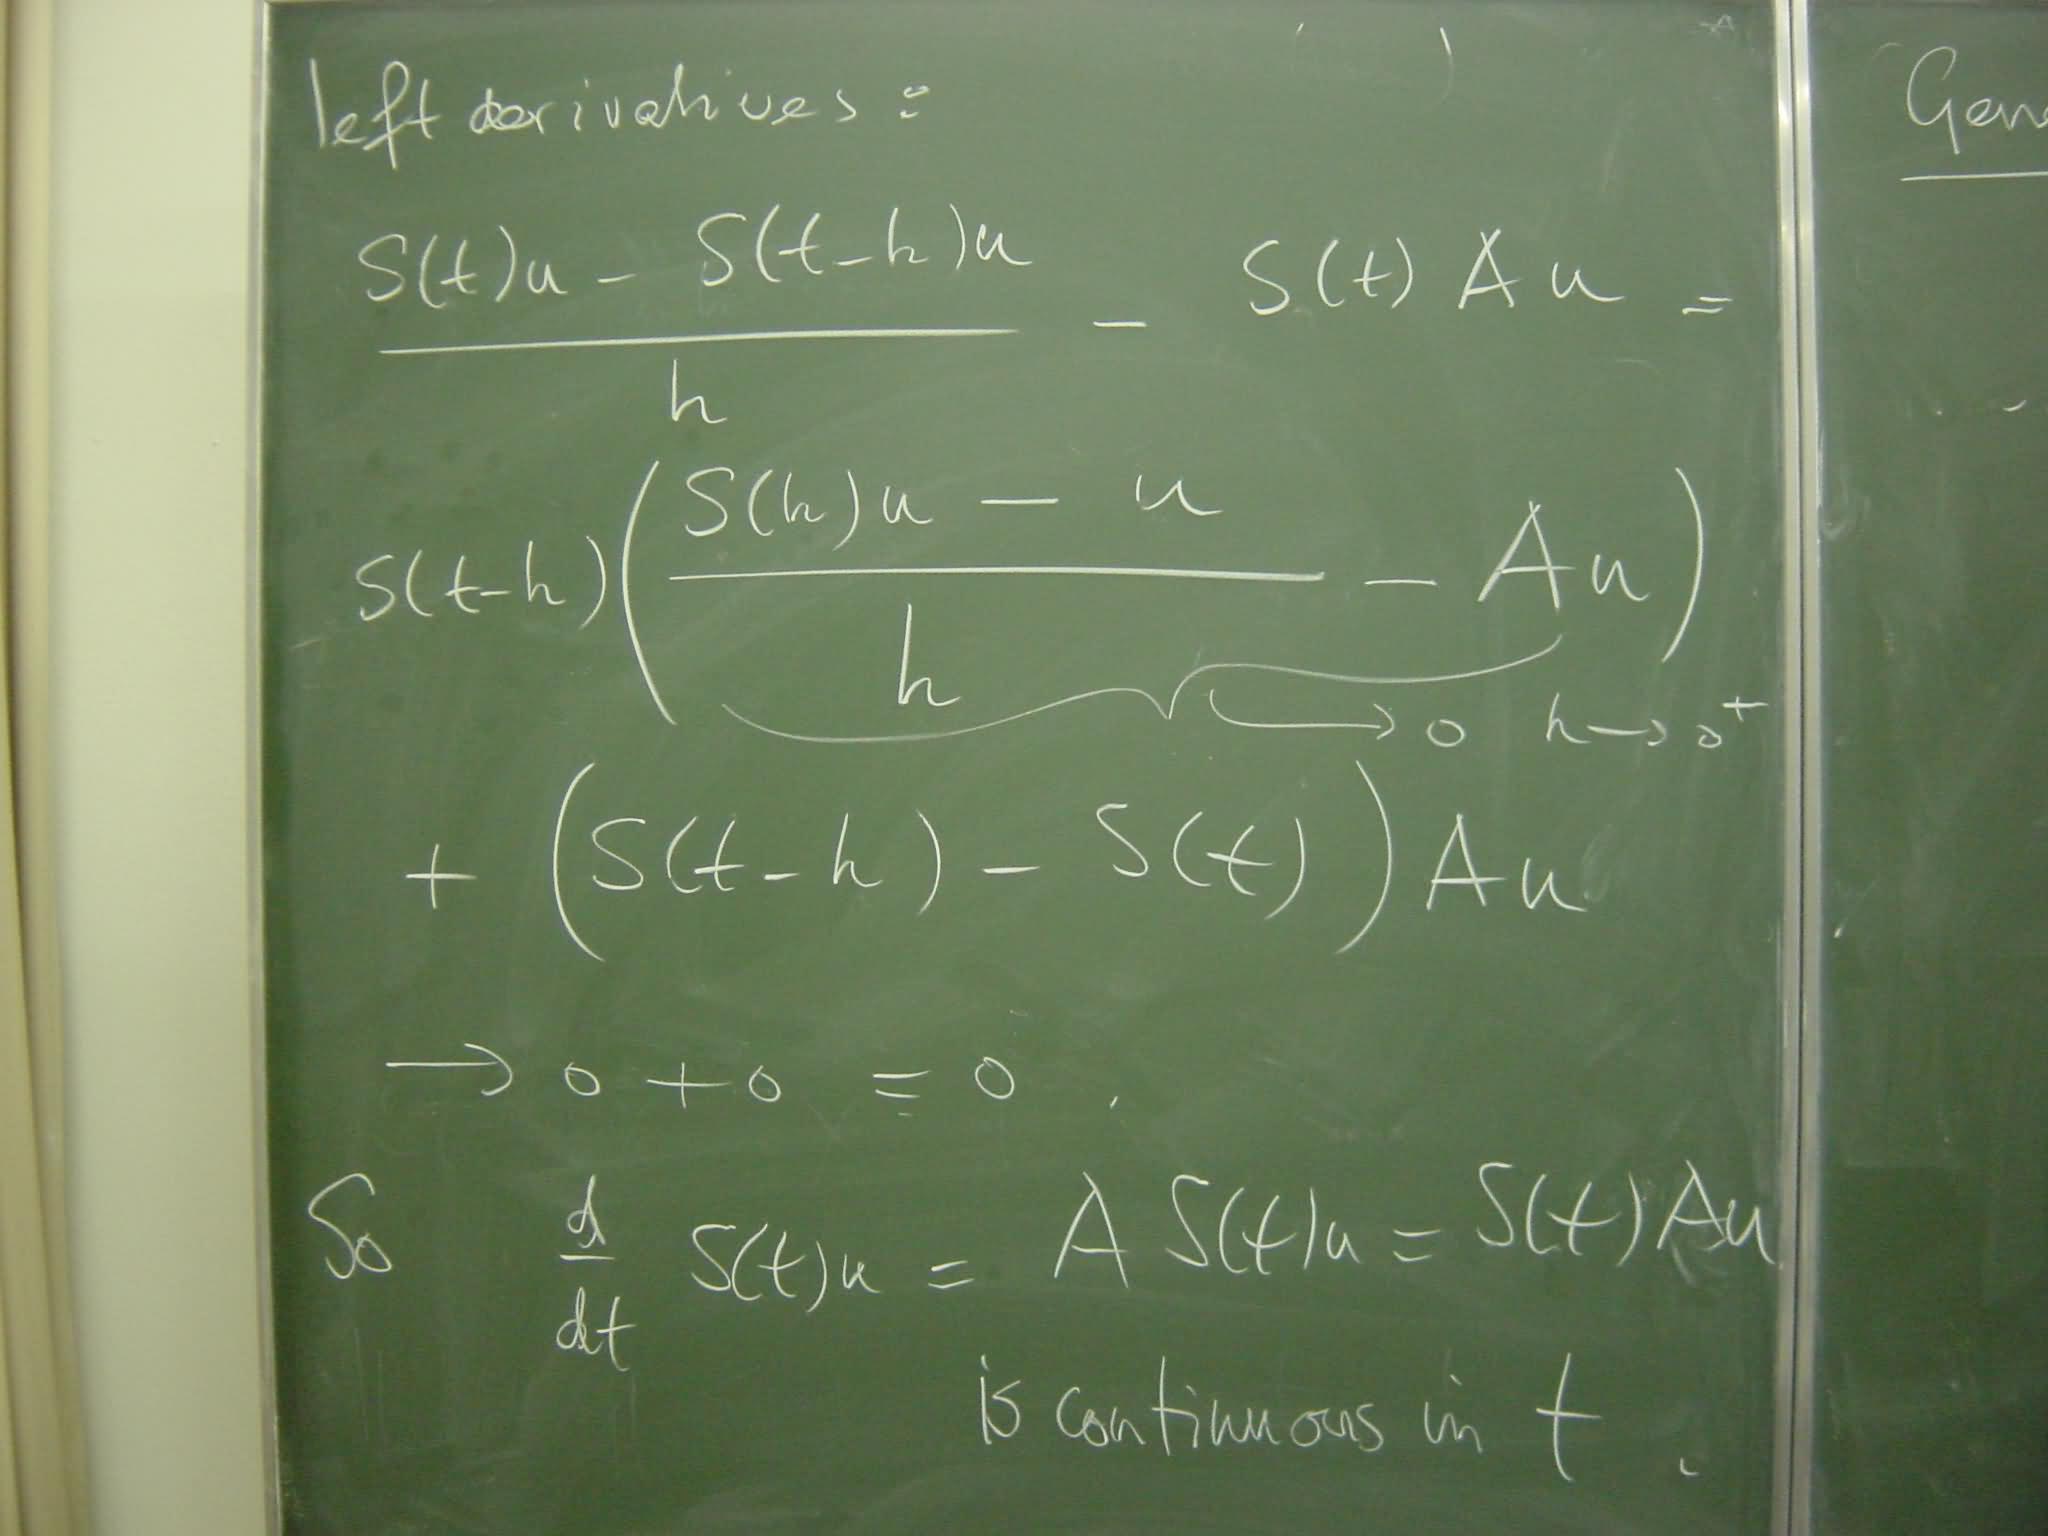 left derivatives:
S(t)u - S(t-h)u
— - S(t) A u =
h
S(h)u - u
S(t-h) ( — - A u )
h
→ 0 h → 0+
+ ( S(t-h) - S(t) ) A u
→ 0 + 0 = 0 .
So d/dt S(t)u = A S(t)u = S(t) A u
is continuous in t .